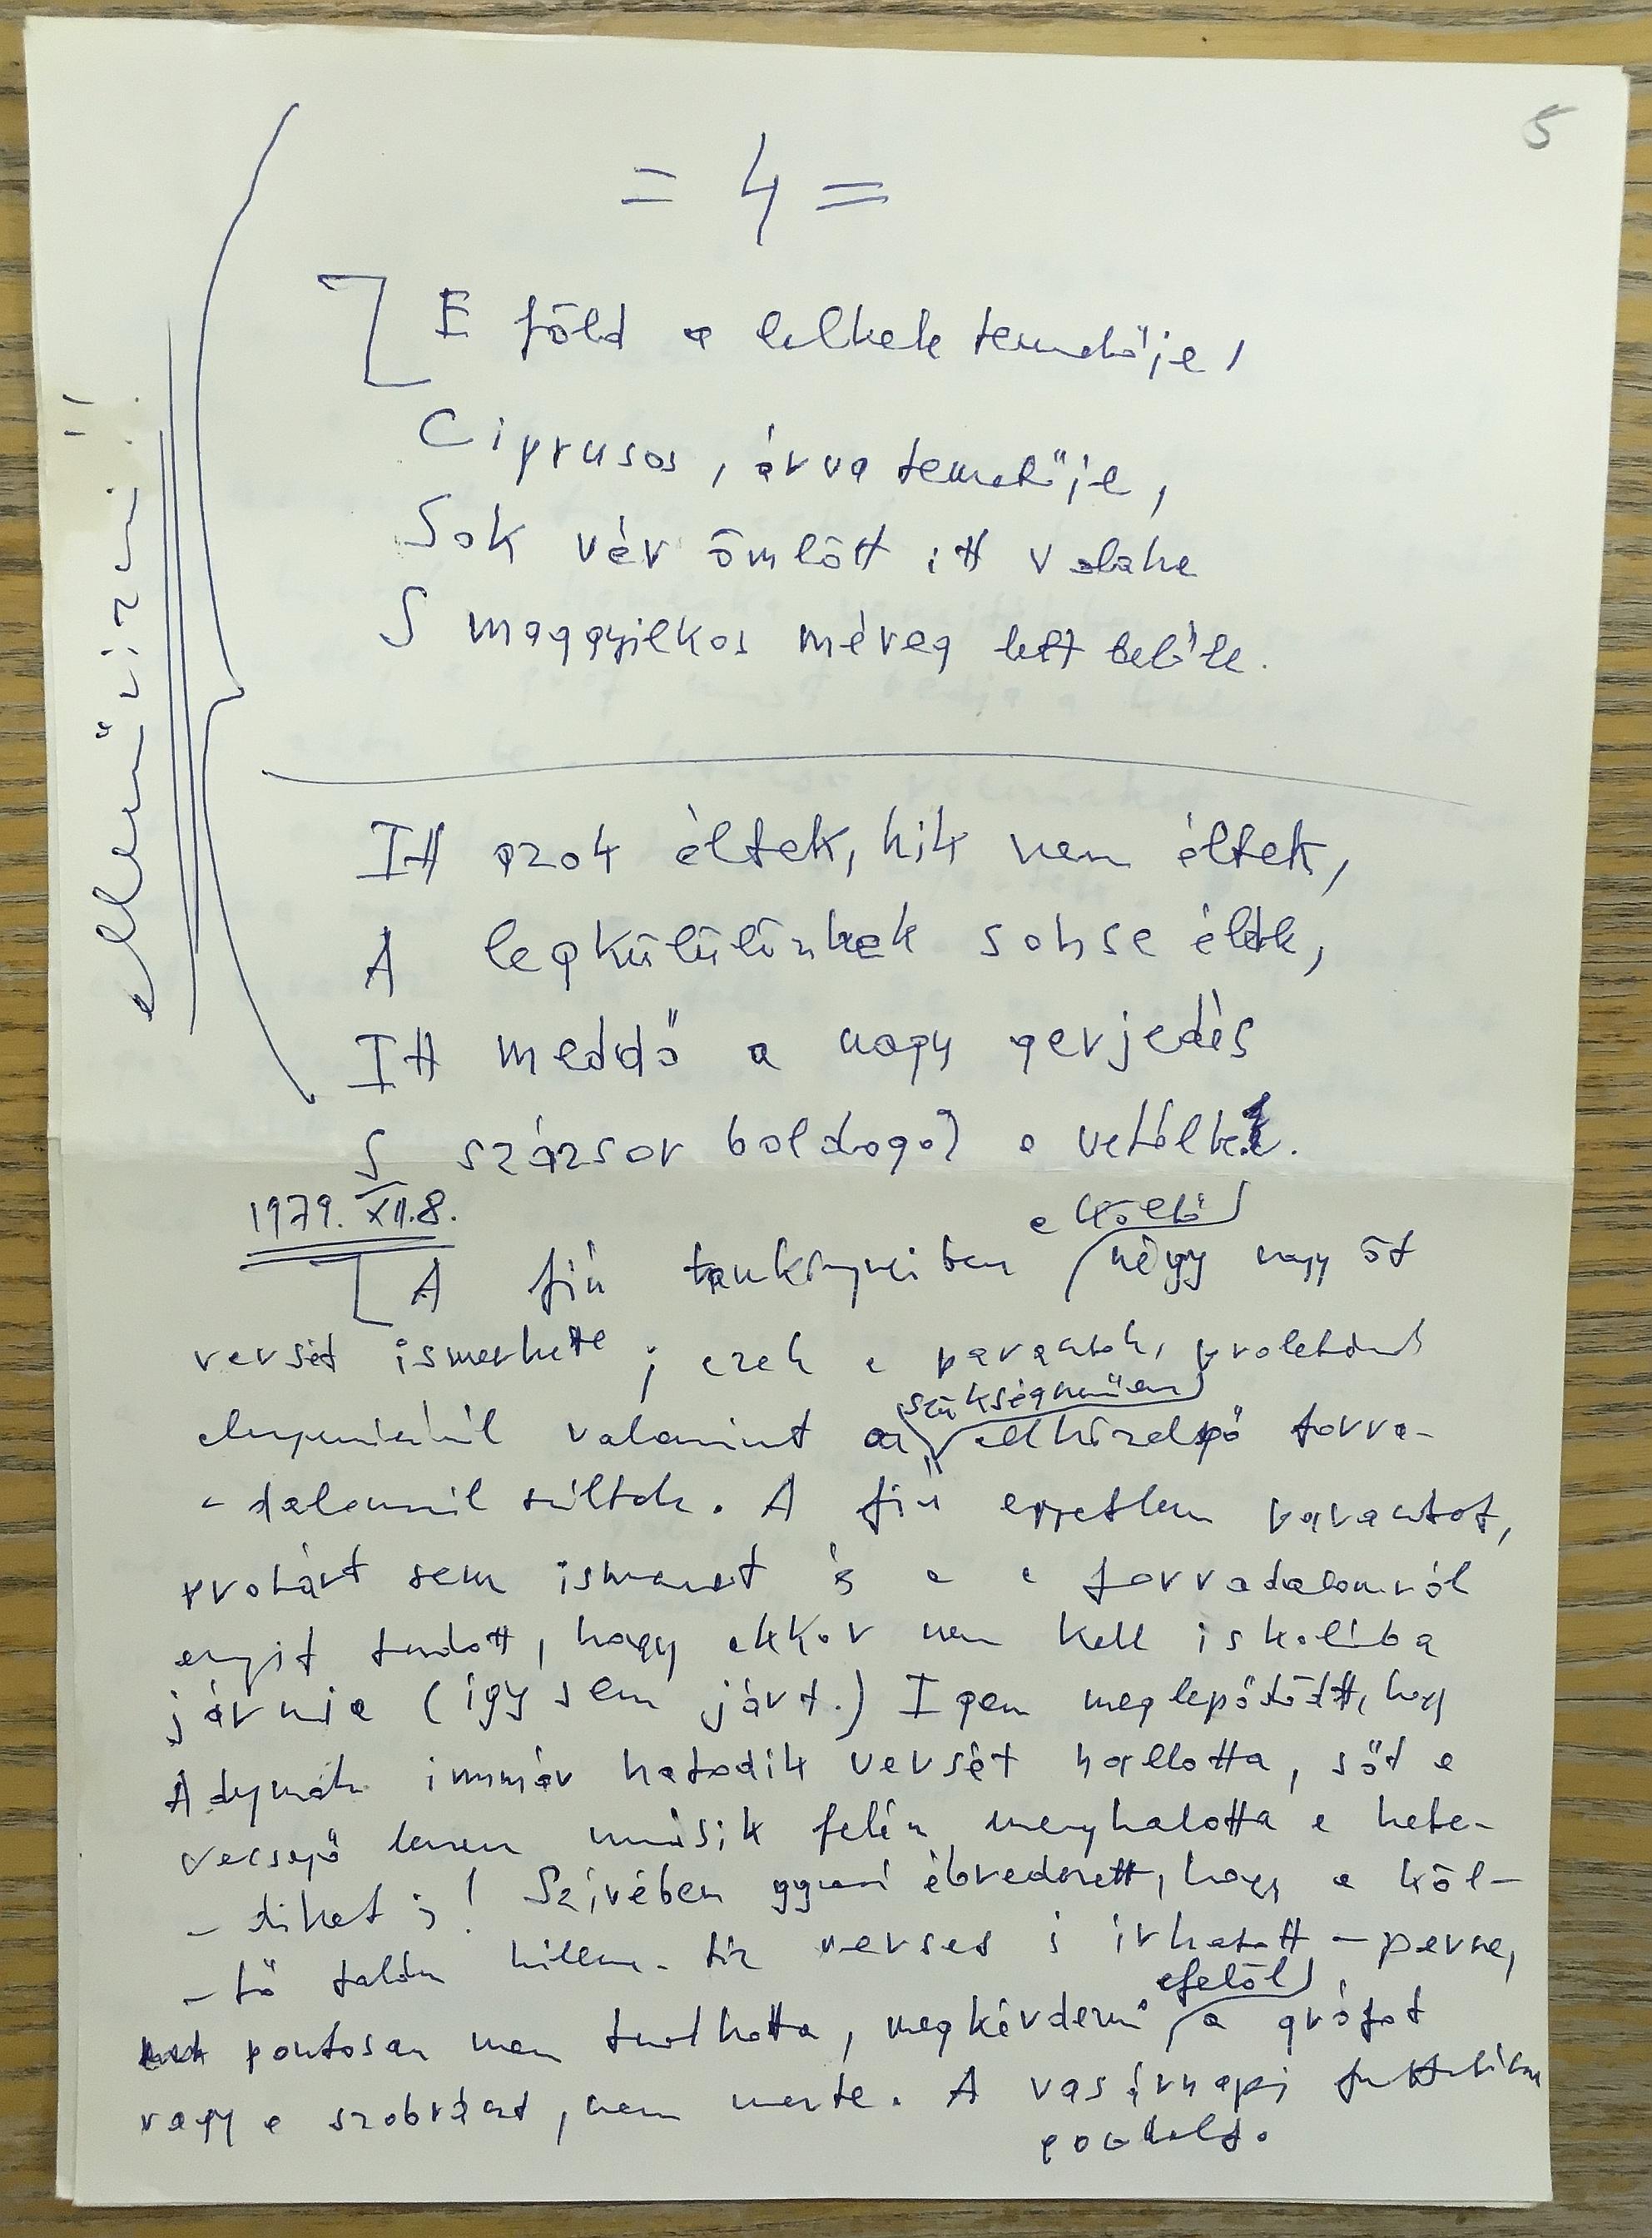 5
= 4 =
ellenőrizni!!
E föld a lelkek temetője,
Ciprusos, árva temetője,
Sok vér ömlött itt valaha
S maggyilkos méreg lett belőle.
Itt azok éltek, kik nem éltek,
A legkülönbek sohse éltek,
Itt meddő a nagy gerjedés
S százszor boldogo) a vetélked.
1979. XII.8.
a költő
A fiú tankönyveiben négy vagy öt
versét ismerhette; ezek a parasztok, proletárok
valamint a szükségszerűen elkövetkező forra-
-dalomról szóltak. A fiú egyetlen parasztot,
prolit sem ismert és a forradalomról
ennyit tudott, hogy akkor nem kell iskolába
járnia (így sem járt.) Igen meglepődött, hogy
Adynak immár hatodik versét hallotta, sőt a
terem másik felén meghallotta a hete-
-diket is! Szívében gyanú ébredezett, hogy a köl-
-tő talán kilenc-tíz verset is írhatott – persze,
pontosan nem tudhatta, megkérdezni efelől a grófot
vagy a szobrászt, nem merte. A vasárnapi